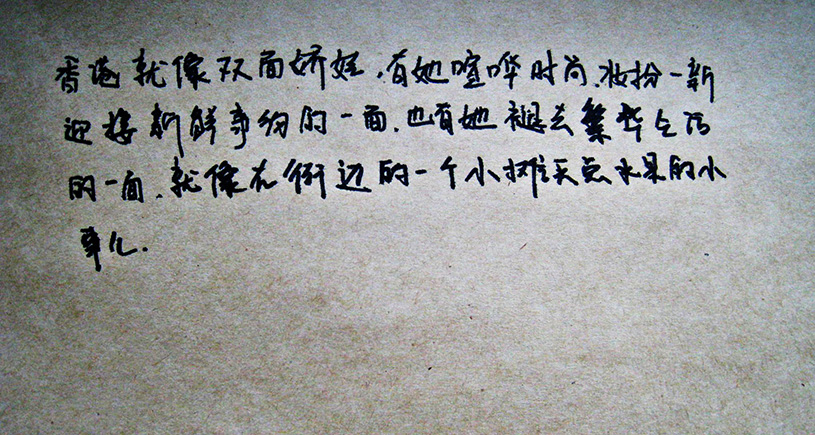 香港就像双面娇娃,有她喧哗时尚、妆扮一新
迎接新鲜事物的一面,也有她褪去繁华生活
的一面,就像在街边的一个小摊买点水果的小
事儿.